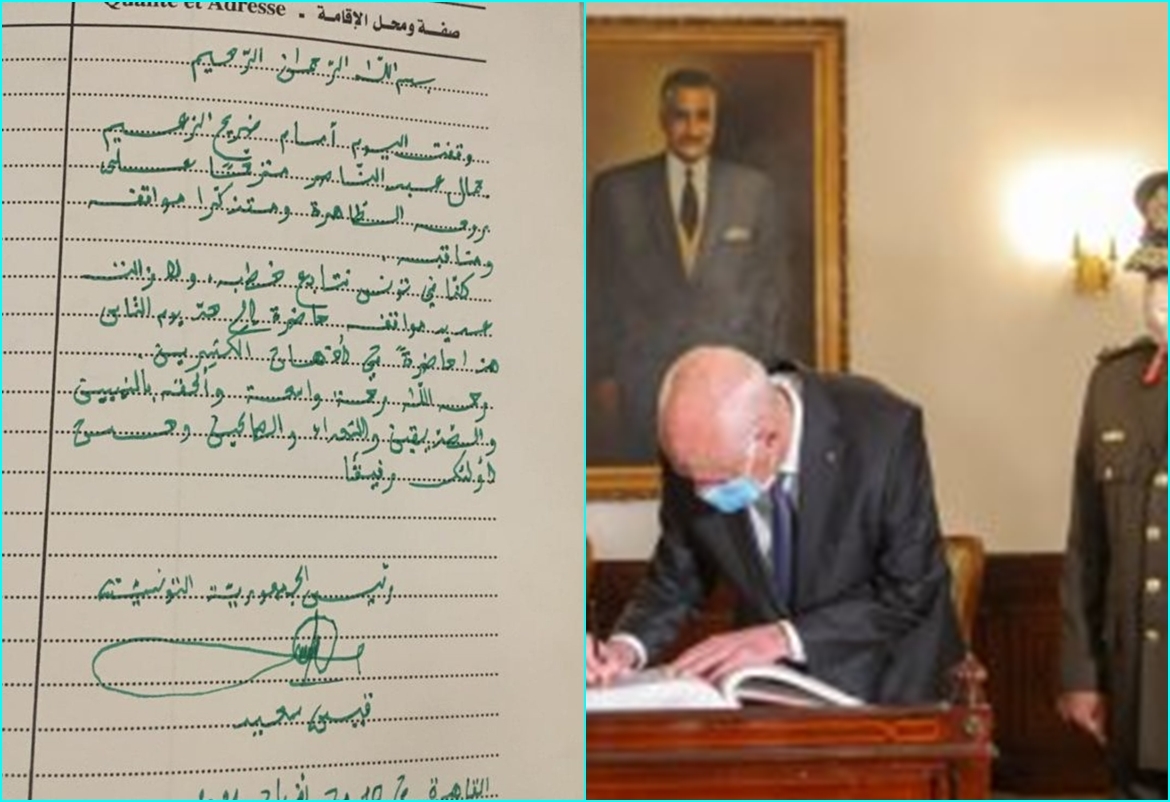 Qualité et Adresse - صفة ومحل الإقامة
بسم اللّه الرّحمان الرّحيم
وقفت اليوم أمام ضريح الزعيم
جمال عبد النّاصر مترحّمًا على
روحه الطّاهرة ومتذكّرا مواقفه
ومناقبه.
كنّا في تونس نتابع خطبه، ولا زالت
عديد مواقفه حاضرة إلى حدّ يوم النّاس
هذا حاضرةً في أذهان الكثيرين.
رحمه اللّه رحمة واسعة وألحقه بالنبيين
والصّدّيقين والشّهداء والصالحين وحسن
أولئك رفيقًا
رئيس الجمهوريّة التونسيّة
قيس سعيد
القاهرة في 10 أفريل